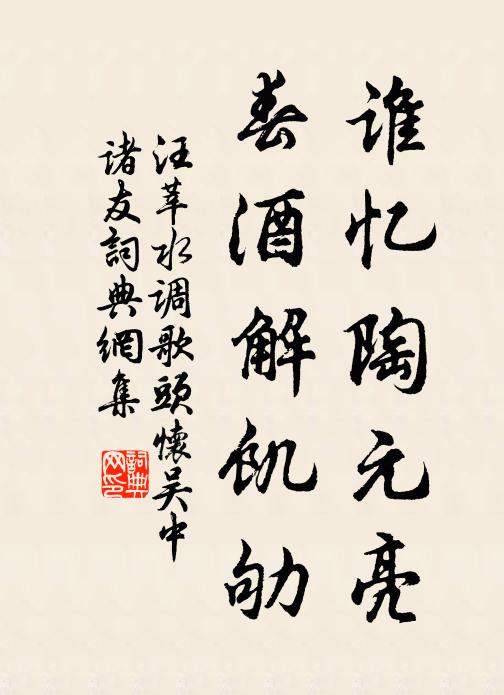 谁忆陶元亮
春酒解飢劬
汪莘水调歌頭懷吴中
诸友詞典網集
詞典网印